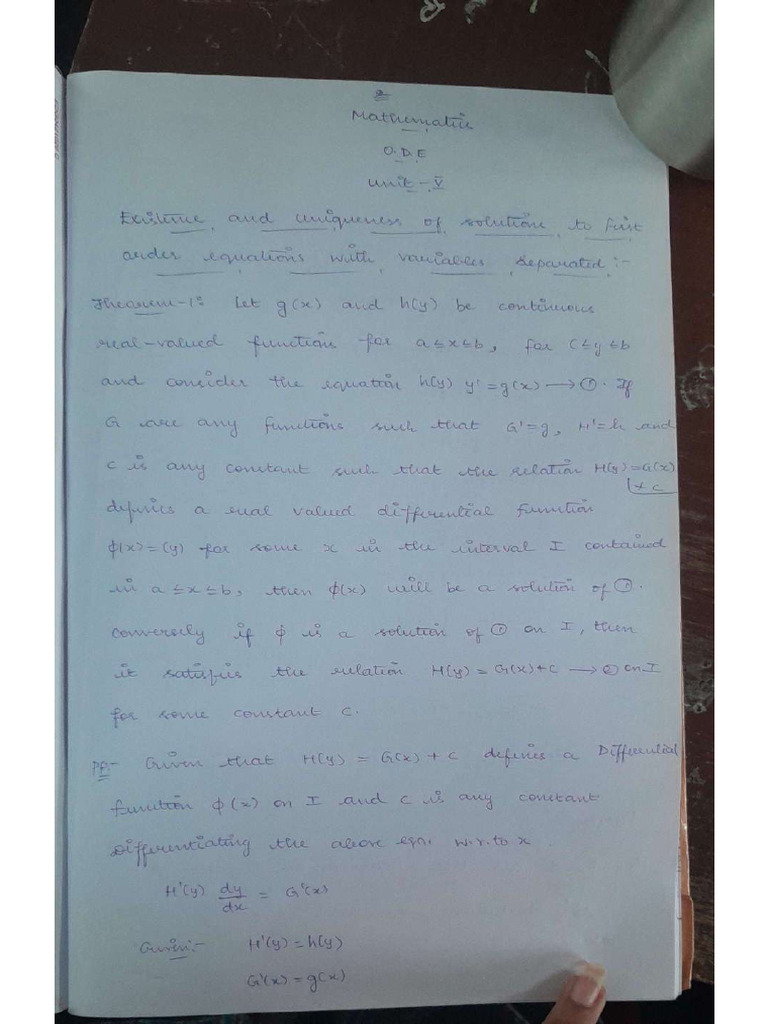 Mathematics
O.D.E
Unit - V
Existence and uniqueness of solutions to first
order equations with variables separated :-
Theorem-1: Let g(x) and h(y) be continuous
real-valued function for a ≤ x ≤ b, for c ≤ y ≤ b
and consider the equation h(y) y' = g(x) → ①. If
G are any functions such that G' = g, H' = h and
c is any constant such that the relation H(y) = G(x)
+ c
defines a real valued differential function
ϕ(x) = (y) for some x in the interval I contained
in a ≤ x ≤ b, then ϕ(x) will be a solution of ①.
conversely if ϕ is a solution of ① on I, then
it satisfies the relation H(y) = G(x) + c → ② on I
for some constant c.
Pf:- Given that H(y) = G(x) + c defines a Differential
function ϕ(x) on I and c is any constant
Differentiating the above eqn. w.r.to x
H'(y) dy/dx = G'(x)
Given:- H'(y) = h(y)
G'(x) = g(x)